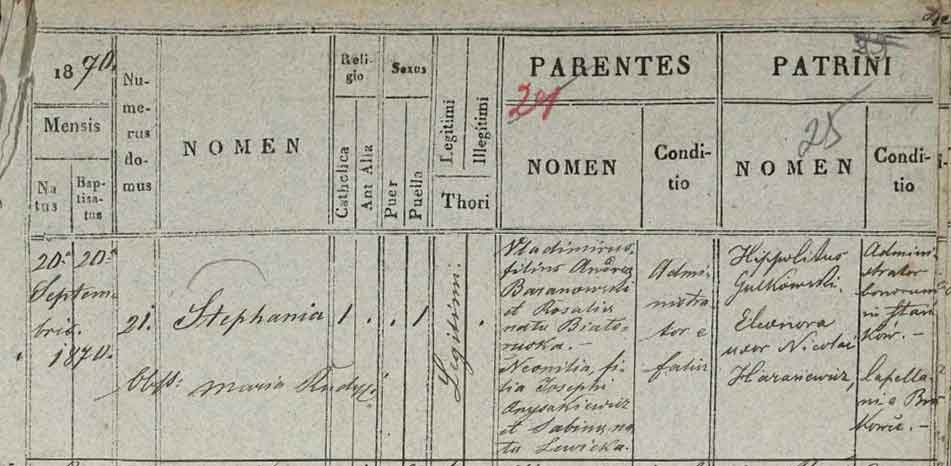 1870.
Mensis
Na
tus
Bap-
tisa-
tus
Nu-
me-
rus
do-
mus
NOMEN
Reli-
gio
Catholica
Aut Alia
Sexus
Puer
Puella
Legitimi
Illegitimi
Thori
PARENTES
24
NOMEN
Condi-
tio
PATRINI
25
NOMEN
Condi-
tio
20. 20.
Septem
bris.
1870.
21.
Stephania
1 . . 1
Legitimi.
Obst: Maria
Vladimirus,
filius Andreæ
Baranowski
et Rosalia
nata Biało-
Neonilia, fi-
lia Josephi
et Sabina na-
ta Lewicka.
Admi-
nistra
tor e
Hippolitus
Gulkowski.
Eleonora
uxor Nicolai
Harasiewicz,
Admini-
strator
bonorum
in Stan
ków. -
Capellani